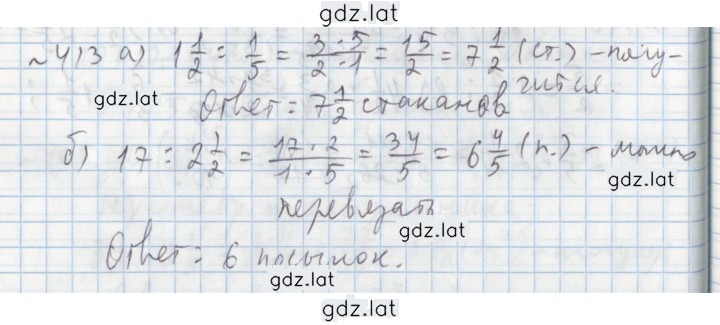 gdz.lat
№413 а) 1 1/2 : 1/5 = 3·5/2·1 = 15/2 = 7 1/2 (ст.) - полу-
чится.
gdz.lat
Ответ: 7 1/2 стаканов
б) 17 : 2 1/2 = 17·2/1·5 = 34/5 = 6 4/5 (п.) - можно
gdz.lat
перевязать
gdz.lat
Ответ: 6 посылок.
gdz.lat
gdz.lat